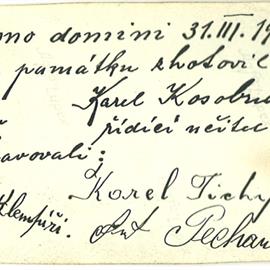 no domini 31. III. 19
památku zhotovil
Karel Kosobu
řídící učitel
avovali:
Karel Tichý
Klempíři. Ant Pechan